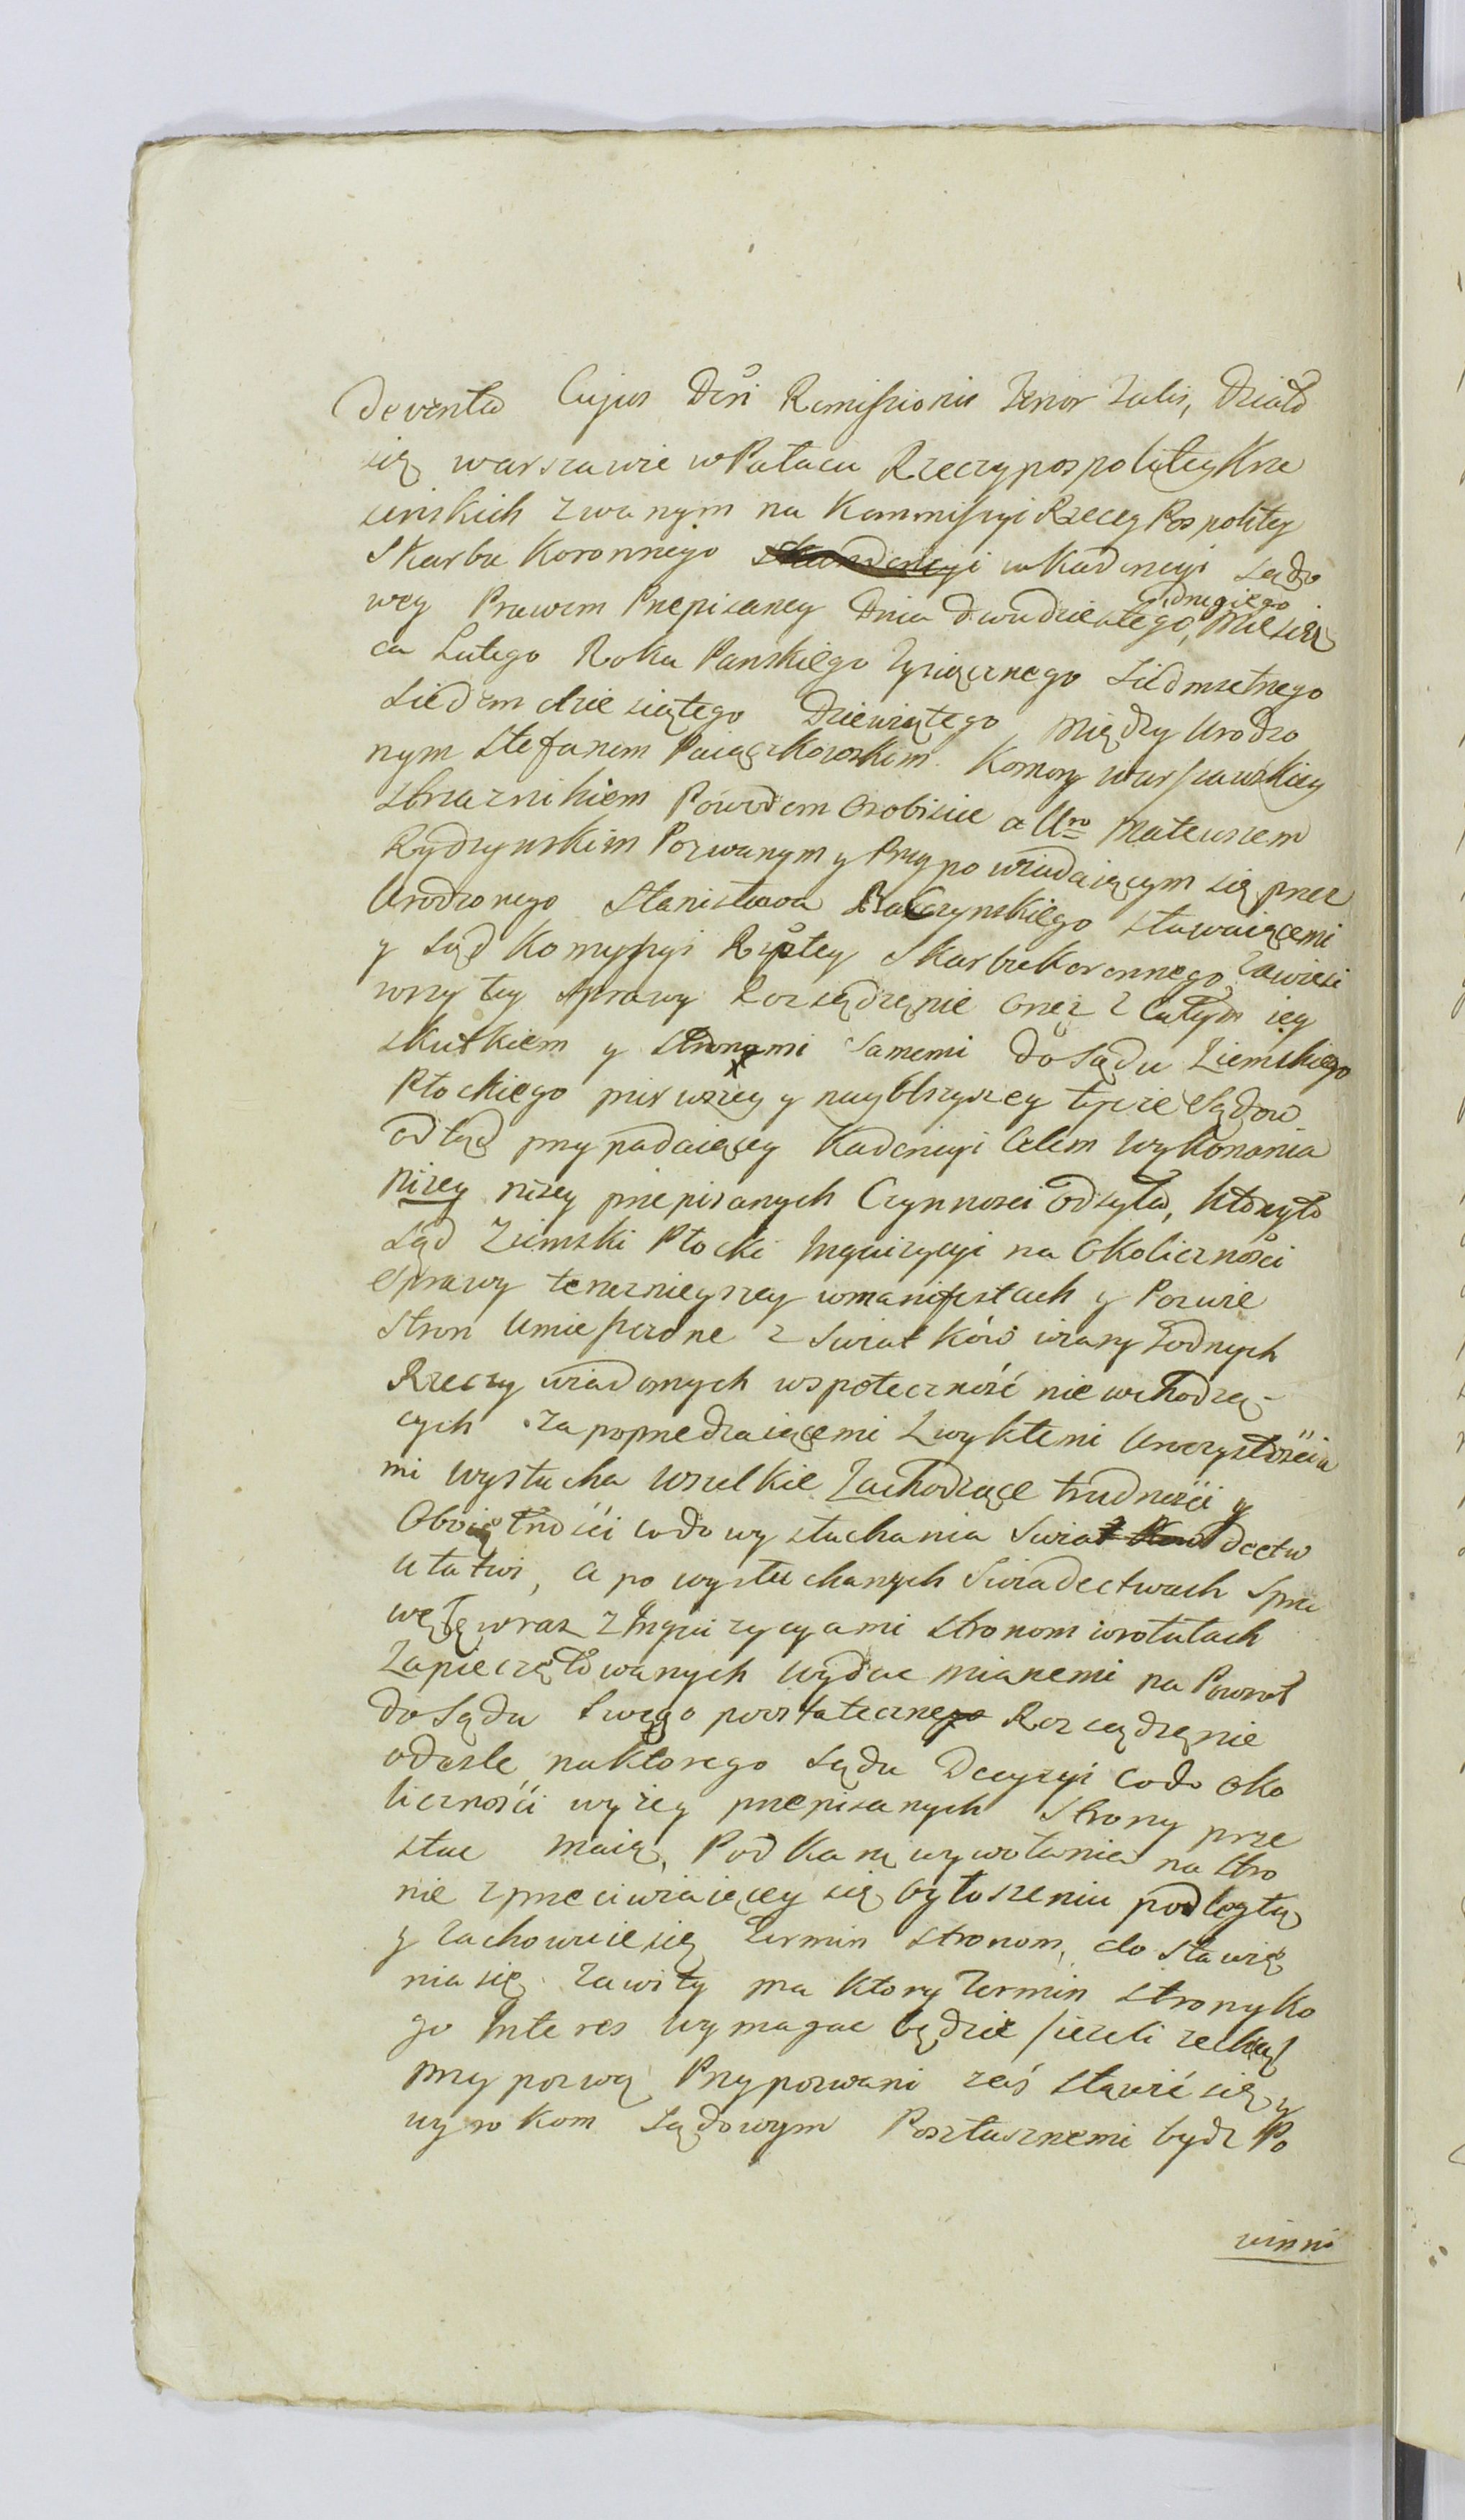 deventa Cujus Dcti Remissionis Tenor Talis, Działo
się warszawie w Pałacu Rzeczypospolitey Kra
sinskich zwanym na Kommissyi Rzeczy Pospolitey
Skarbu Koronnego w Kadencyi Sądo
wey Prawem Przepisaney Dnia dwudziestego drugiego, Miesią
ca Lutego Roku Panskiego Tysiącznego Siedmsetnego
Siedemdziesiątego Dziewiątego Między Urodzo
nym Stefanem Paiączkowskim Komory warszawskiey
Strażnikiem Powodem Osobiście a Uro Mateuszem
Rydzynskim Pozwanym y Przypowiadaiącym się przez
Urodzonego Stanisława Raczynskiego stawaiącemi
y Sąd Komyssyi Rzptey Skarbu Koronnego, Zawiesi
wszy tey sprawy Rozsądzęnie onęż z Całym iey
skutkiem y stronami Samemi do Sądu Ziemskiego
Płockiego pierwszey y naybliższey tychże Sądow
odtąd przypadaiącey Kadencyi Celem wykonania
niżey niżey przepisanych Czynnosci odsyła, ktoryto
Sąd Ziemski Płocki Inquizycyi na Okoliczności
Sprawy teraznieyszey w manifestach y Pozwie
stron umieszczone z Swiatków wiary godnych
Rzeczy wiadomych wspołeczność nie wchodzą-
cych zapoprzedzaiącemi Zwykłemi Uroczystościa
mi wysłucha wszelkie Zachodzące trudności y
Oboiętności co do wysłuchania Swiadectw
ułatwi, a po wysłuchanych Swiadectwach Spra
wę tę wraz z Inquizycyami stronom w rotułach
Zapieczętowanych wydac mianemi na Powrot
do Sądu Swego po ostateczne Rozsądzęnie
odesle, na ktorego Sądu Decyzyi co do oko
liczności wyżey przepisanych Strony prze
stac maią, Pod Karą wywołania na stro
nie zprzeciwiaiącey się ogłoszeniu podległą
y zachowuie się Termin stronom, do stawię
nia się Zawity ma ktory Termin Strony ko
go Interes wymagac będzie /ieżeli zechcą/
przypozwą Przypozwani zaś stawić się y
wyrokom Sądowym Posłusznemi bydz Po
winni